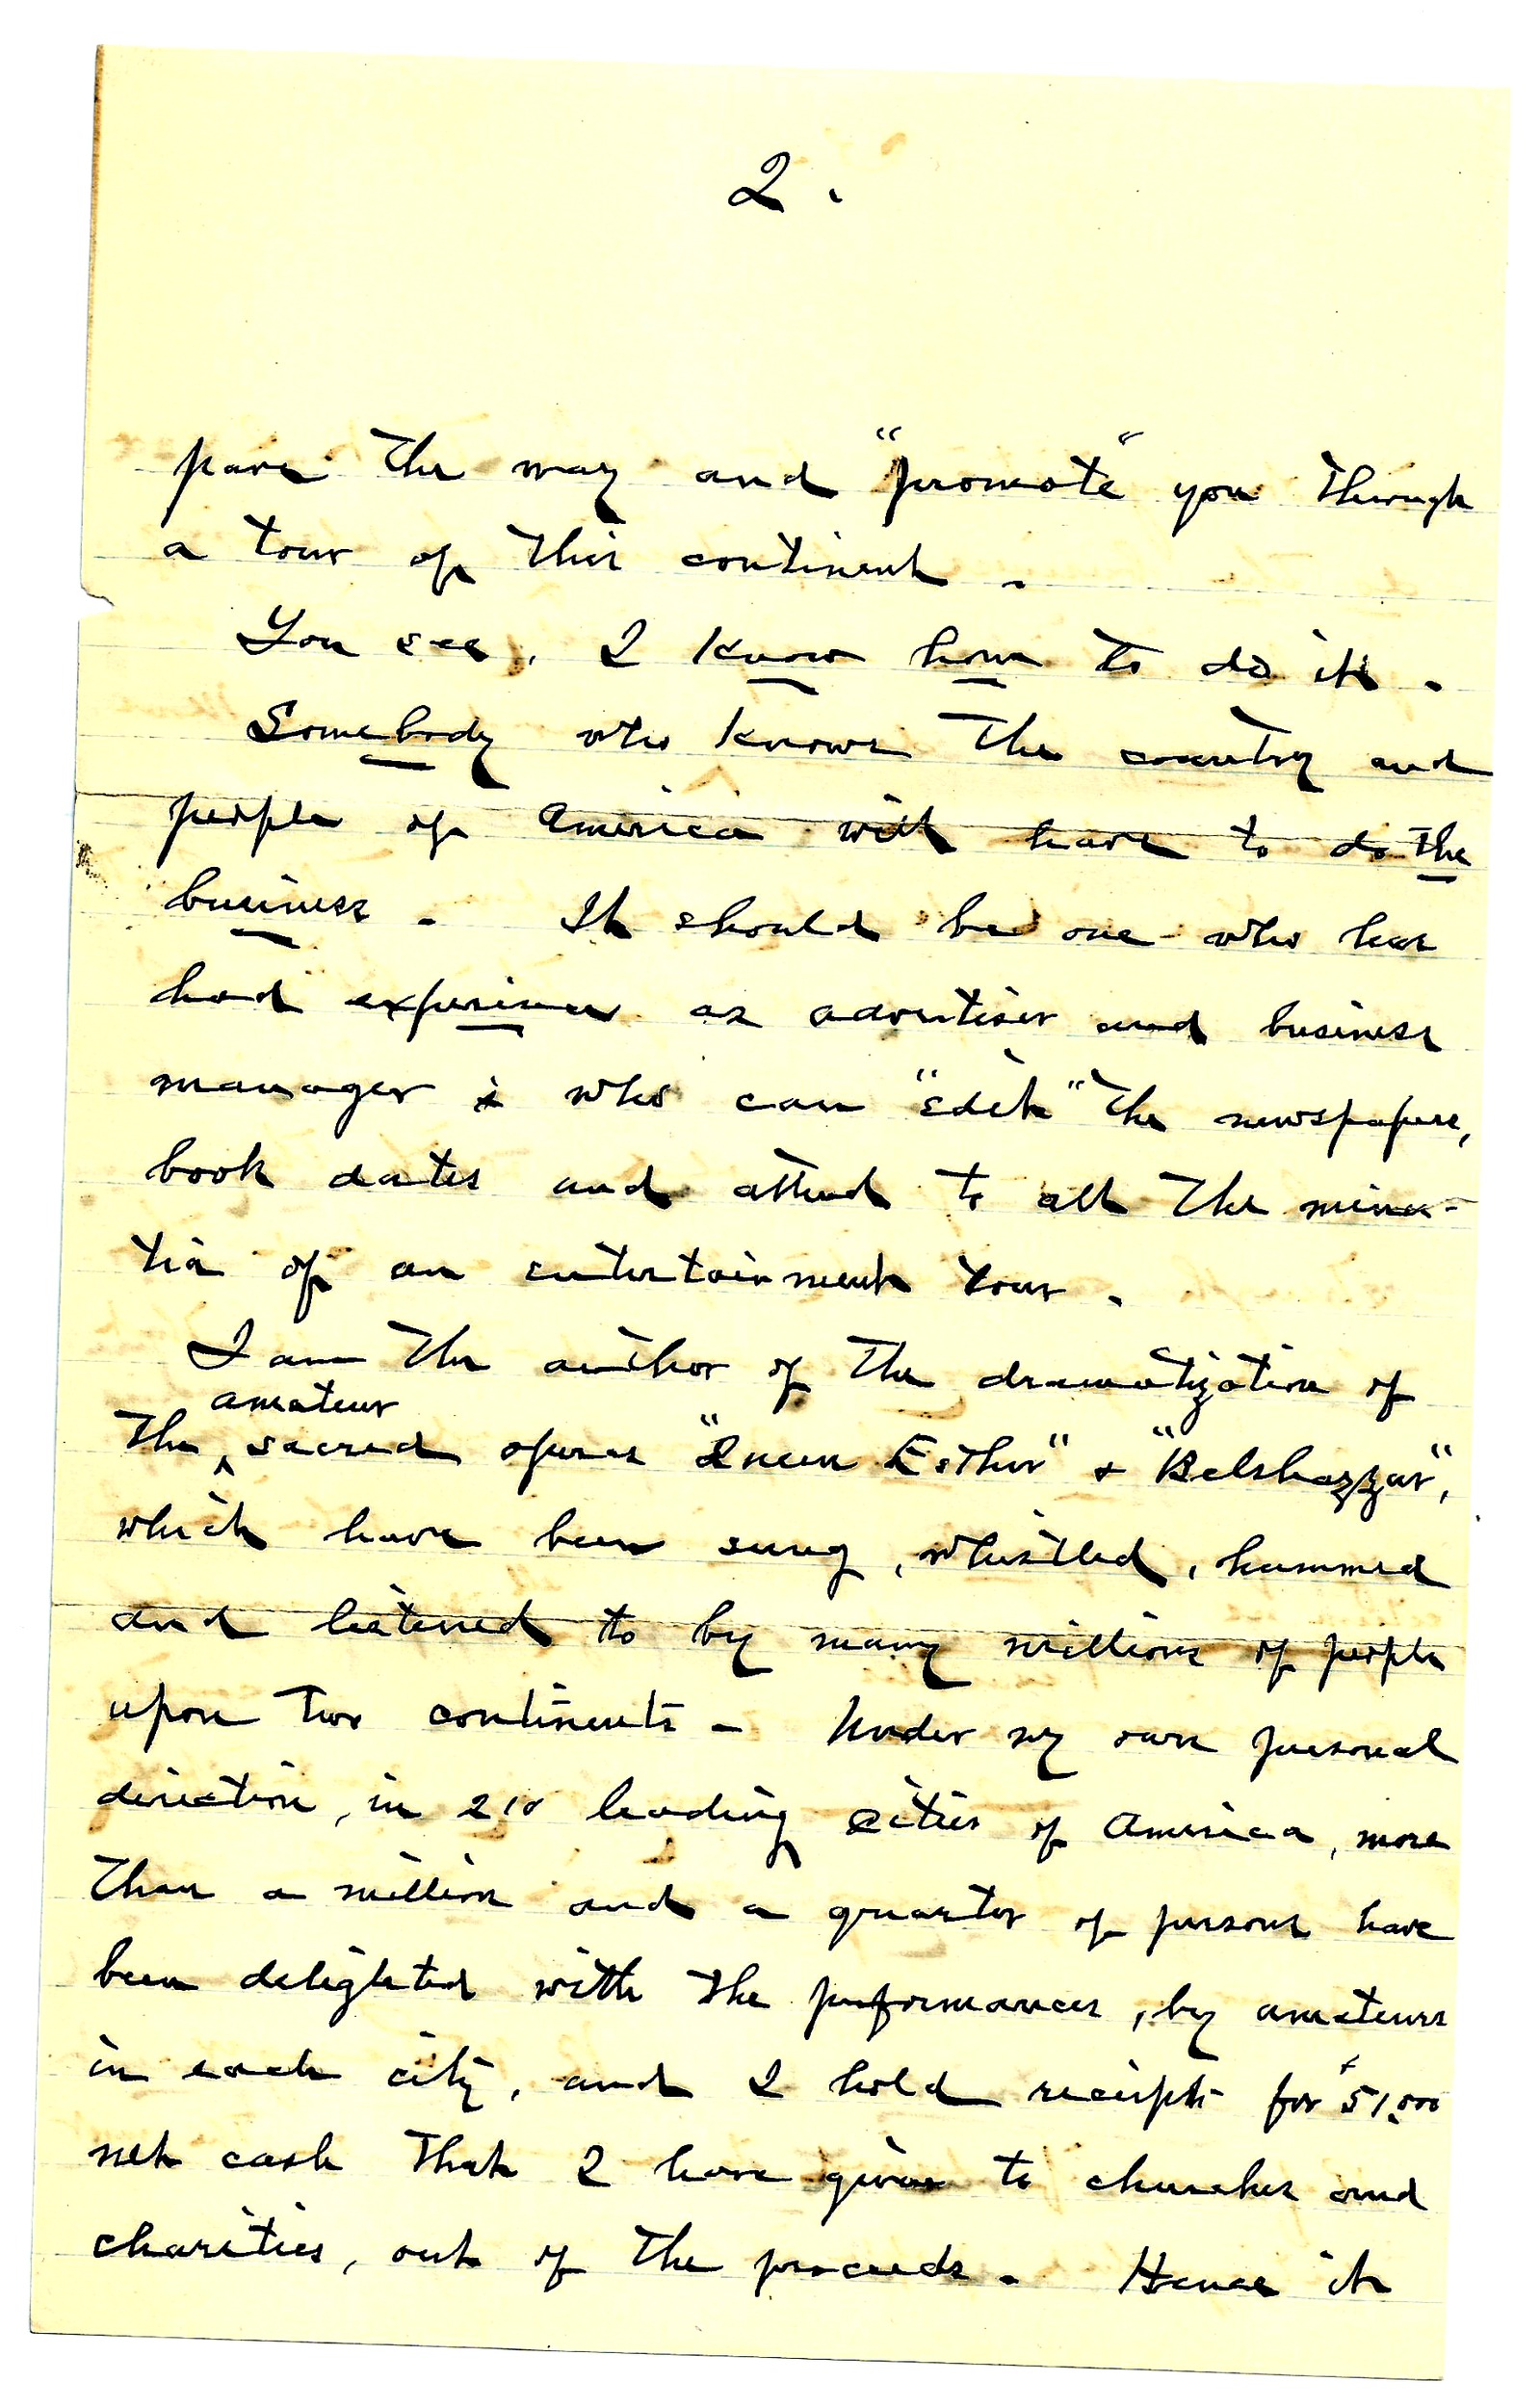 2.
pave the way and "promote" you through
a tour of this continent.
You see, I know how to do it.
Somebody who knows the country and
people of America will have to do the
business. It should be one who has
had experience as advertiser and business
manager & who can "edit" the newspapers,
book dates and attend to all the minu-
tia of an entertainment tour.
I am the author of the dramatization of
amateur
the ^ sacred operas "Queen Esther" & "Belshazzar",
which have been sung, whistled, hummed
and listened to by many millions of people
upon two continents. Under my own personal
direction, in 210 leading cities of America, more
than a million and a quarter of persons have
been delighted with the performances, by amateurs
in each city, and I hold receipts for $51,000
net cash that I have given to churches and
charities, out of the proceeds. Hence it